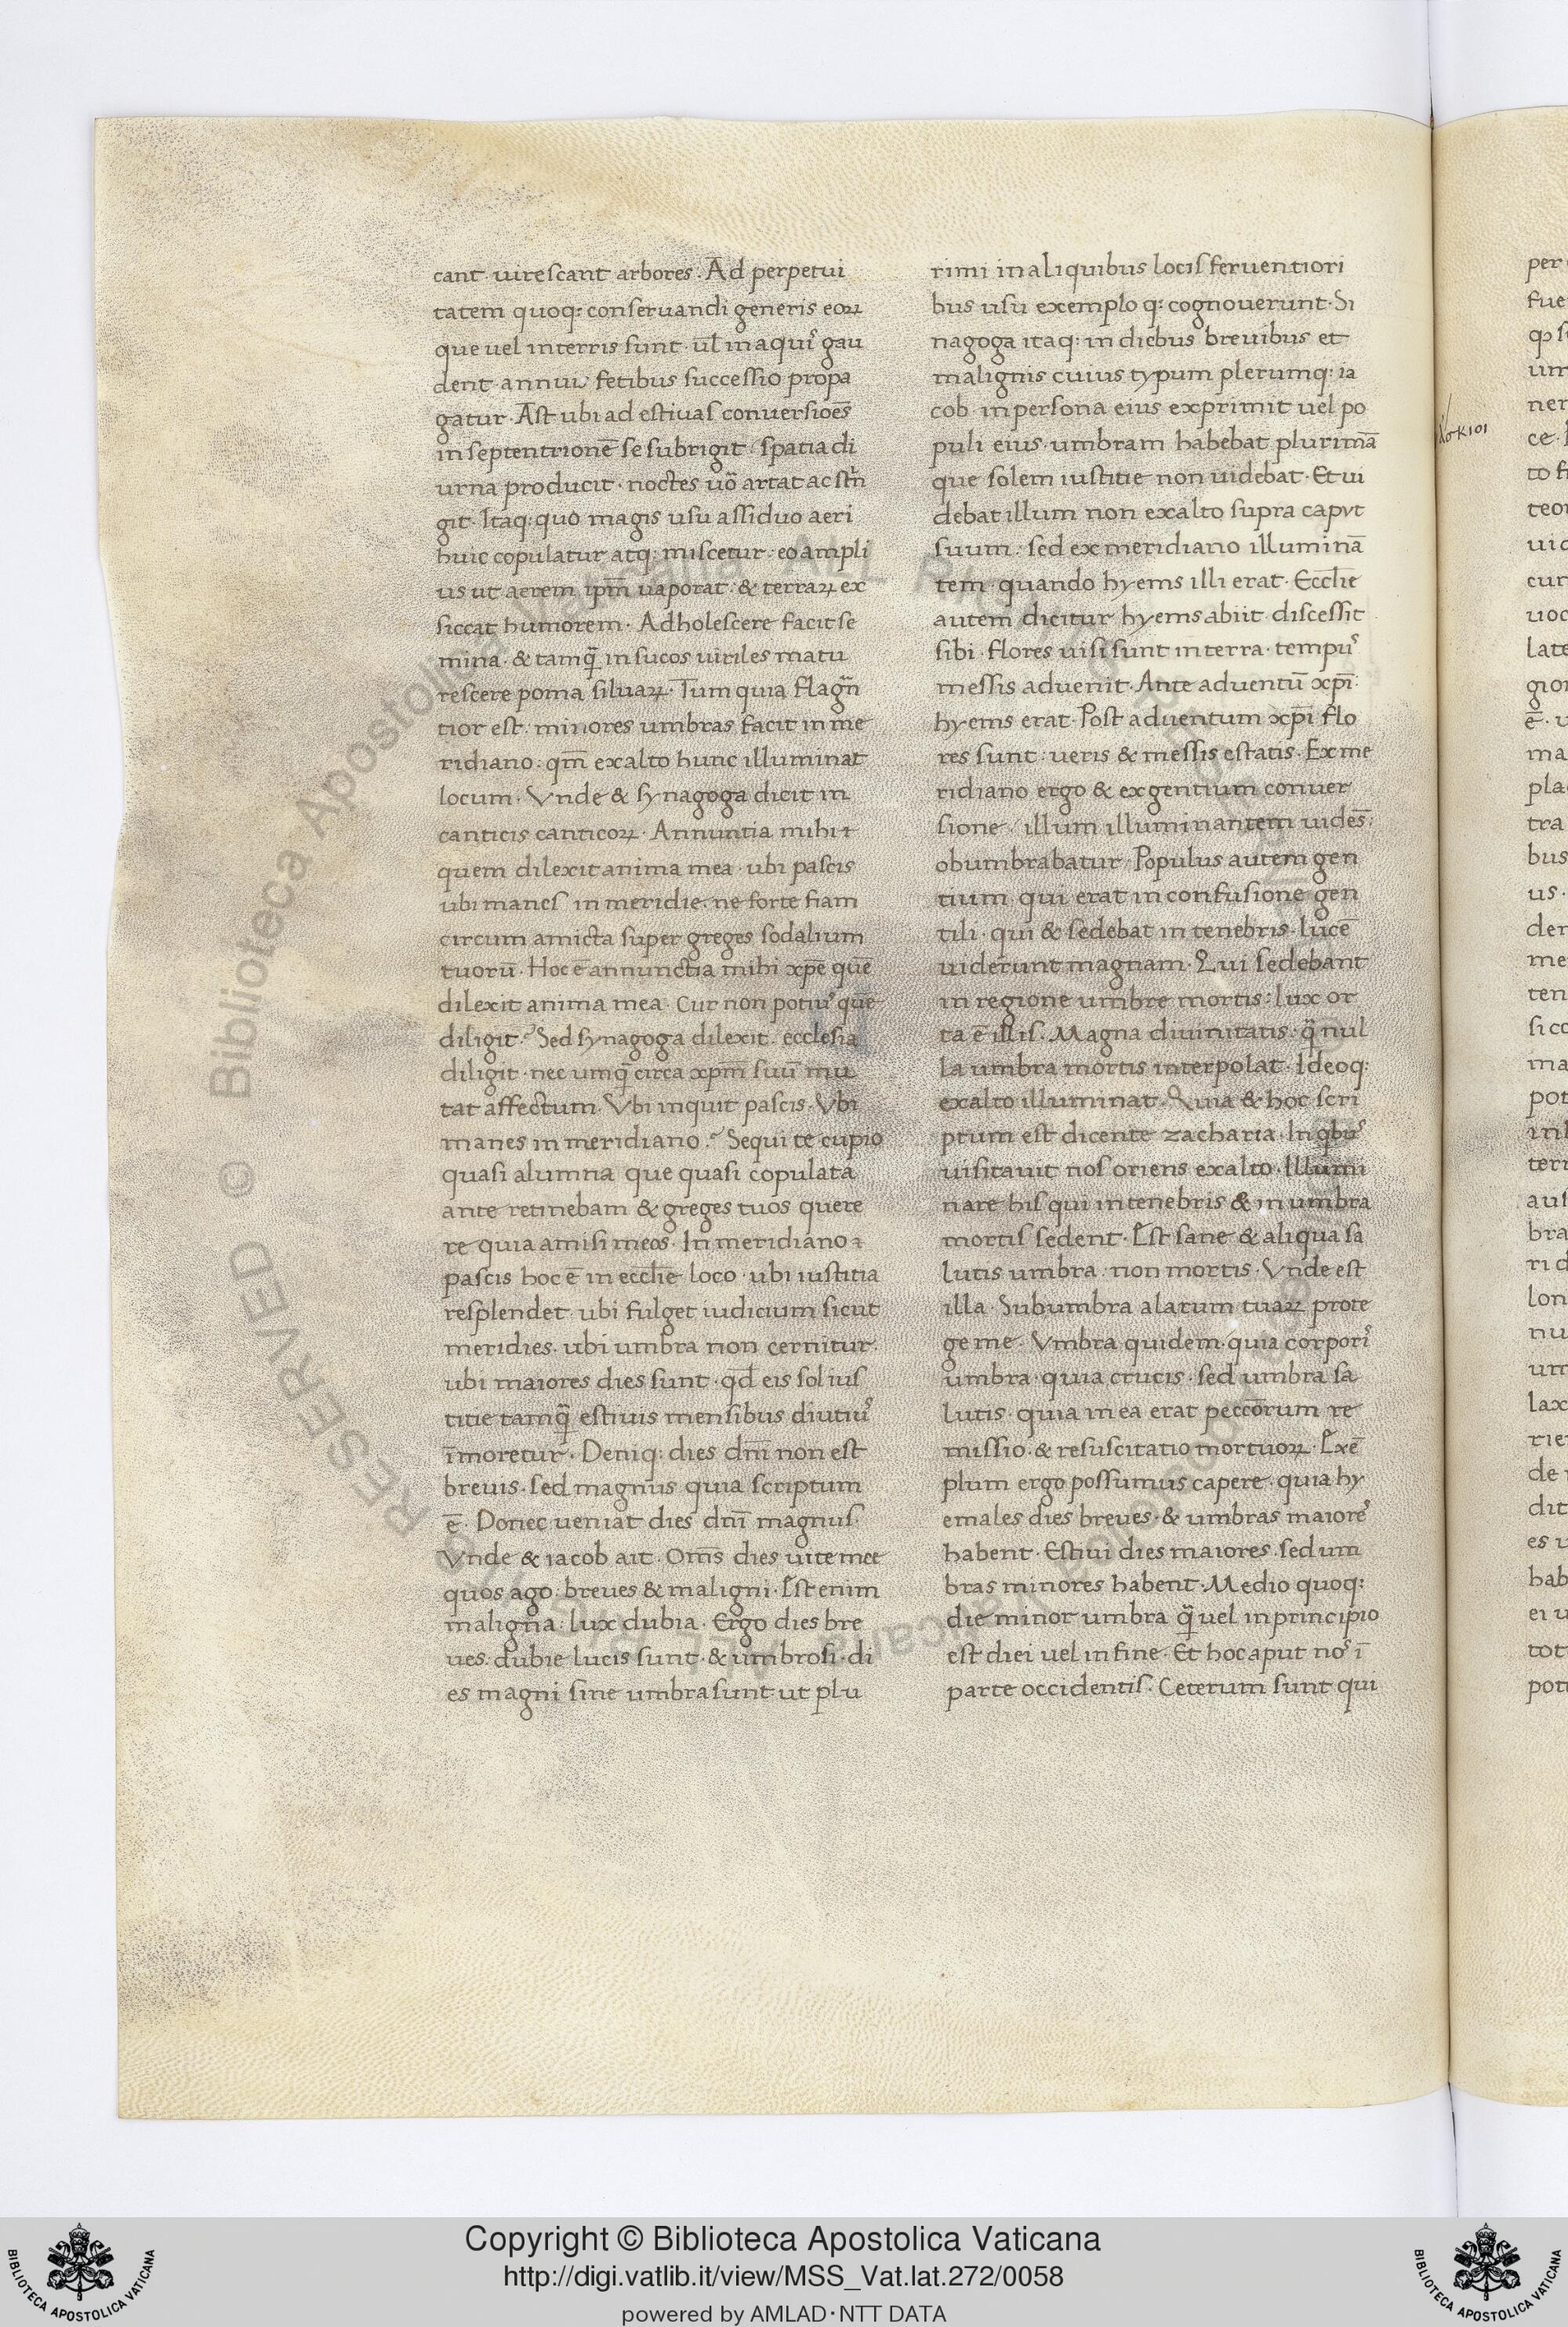 cant · uirescant arbores . Ad perpetui
tatem quoq: conseruandi generis eoꝝ
que uel interris sunt · ul̄ inaquiˢ gau
dent · annuis fetibus successio propa
gatur · Ast ubi ad estiuas conuersiōes
in septentrionē se subrigit : spatia di
urna producit · noctes uō artat ac strī
git · Itaq: quo magis usu assiduo aeri
huic copulatur atq: miscetur : eo ampli
us ut aerem ip̄m uaporat : & terraꝝ ex
siccat humorem · Adholescere facit se
mina · & tamq̄ in sucos uiriles matu
rescere poma siluaꝝ · Tum quia flagrā
tior est : minores umbras facit in me
ridiano : qm̄ exalto hunc illuminat
locum · Vnde & synagoga dicit in
canticis canticoꝝ · Annuntia mihi
quem dilexit anima mea · ubi pascis
ubi manes in meridie · ne forte fiam
circum amicta super greges sodalium
tuorū · Hoc ē annunctia mihi xp̄e quē
dilexit anima mea · Cur non potiuˢ quē
diligit ? Sed synagoga dilexit · ecclesia
diligit · nec umq̄ circa xp̄m suū mu
tat affectum · Vbi inquit pascis · Vbi
manes in meridiano ? Sequi te cupio
quasi alumna que quasi copulata
ante retinebam & greges tuos quere
re quia amisi meos · In meridiano
pascis hoc ē in eccl̄ie loco · ubi iustitia
resplendet · ubi fulget iudicium sicut
meridies · ubi umbra non cernitur ·
ubi maiores dies sunt · qd̄ eis sol ius
titie tamq̄ estiuis mensibus diutiuˢ
īmoretur · Deniq: dies dn̄i non est
breuis · sed magnus quia scriptum
ē · Donec ueniat dies dn̄i magnus ·
Vnde & iacob ait · Om̄s dies uite mee
quos ago : breues & maligni · Est enim
maligna : lux dubia · Ergo dies bre
ues · dubie lucis sunt · & umbrosi · di
es magni sine umbra sunt ut plu
rimi in aliquibus locis feruentiori
bus usu exemplo q: cognouerunt · Si
nagoga itaq: in diebus breuibus et
malignis cuius typum plerumq: ia
cob · in persona eius exprimit uel po
puli eius · umbram habebat plurimā
que solem iustitie non uidebat · Et ui
debat illum non exalto supra caput
suum : sed ex meridiano illuminā
tem · quando hyems illi erat · Eccl̄ie
autem dicitur hyems abiit · discessit
sibi · flores uisi sunt in terra · tempuˢ
messis aduenit · Ante aduentū xp̄i ·
hyems erat · Post aduentum xp̄i flo
res sunt : ueris & messis estatis · Ex me
ridiano ergo & ex gentium conuer
sione / illum illuminantem uidēs :
obumbrabatur · Populus autem gen
tium · qui erat in confusione gen
tili · qui & sedebat in tenebris · lucē
uiderunt magnam · Qui sedebant
in regione umbre mortis : lux or
ta ē illis · Magna diuinitatis · q̄ nul
la umbra mortis interpolat · Ideoq:
exalto illuminat · Quia & hoc scri
ptum est dicente zacharia · In qbuˢ
uisitauit nos oriens exalto · Illumi
nare his qui in tenebris & in umbra
mortis sedent · Est sane & aliqua sa
lutis umbra · non mortis · Vnde est
illa · Subumbra alarum tuaꝝ prote
ge me · Vmbra quidem · quia corporiˢ
umbra · quia crucis · sed umbra sa
lutis · quia in ea erat peccōrum re
missio · & resuscitatio mortuoꝝ · Exē
plum ergo possumus capere · quia hy
emales dies breues · & umbras maioreˢ
habent · Estiui dies maiores · sed um
bras minores habent · Medio quoq:
die minor umbra q̄ uel in principio
est diei uel in fine · Et hoc aput noˢ ī
parte occidentis · Ceterum sunt qui
Copyright © Biblioteca Apostolica Vaticana
http://digi.vatlib.it/view/MSS_Vat.lat.272/0058
powered by AMLAD · NTT DATA
BIBLIOTECA APOSTOLICA VATICANA
BIBLIOTECA APOSTOLICA VATICANA